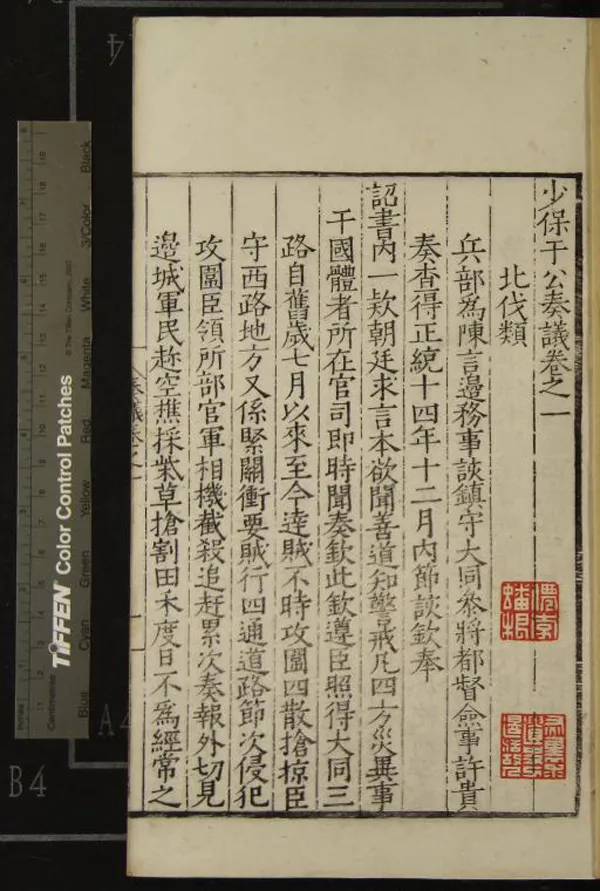 少保于公奏議卷之一
北伐類
兵部為陳言邊務事該鎮守大同叅將都督僉事許貴
奏查得正統十四年十二月內節該欽奉
詔書內一欵朝廷求言本欲聞善道知警戒凡四方災異事
干國體者所在官司即時聞奏欽此欽遵臣照得大同三
路自舊歲七月以來至今達賊不時攻圍四散搶掠臣
守西路地方又係緊關衝要賊行四通道路節次侵犯
攻圍臣領所部官軍相機截殺追赶累次奏報外切見
邊城軍民趂空樵採柴草搶割田禾度日不為經常之
奏議卷之一
一
TIFFEN Color Control Patches
© The Tiffen Company, 2007
Inches
Centimetres
Blue
Cyan
Green
Yellow
Red
Magenta
White
3/Color
Black
B4
A4